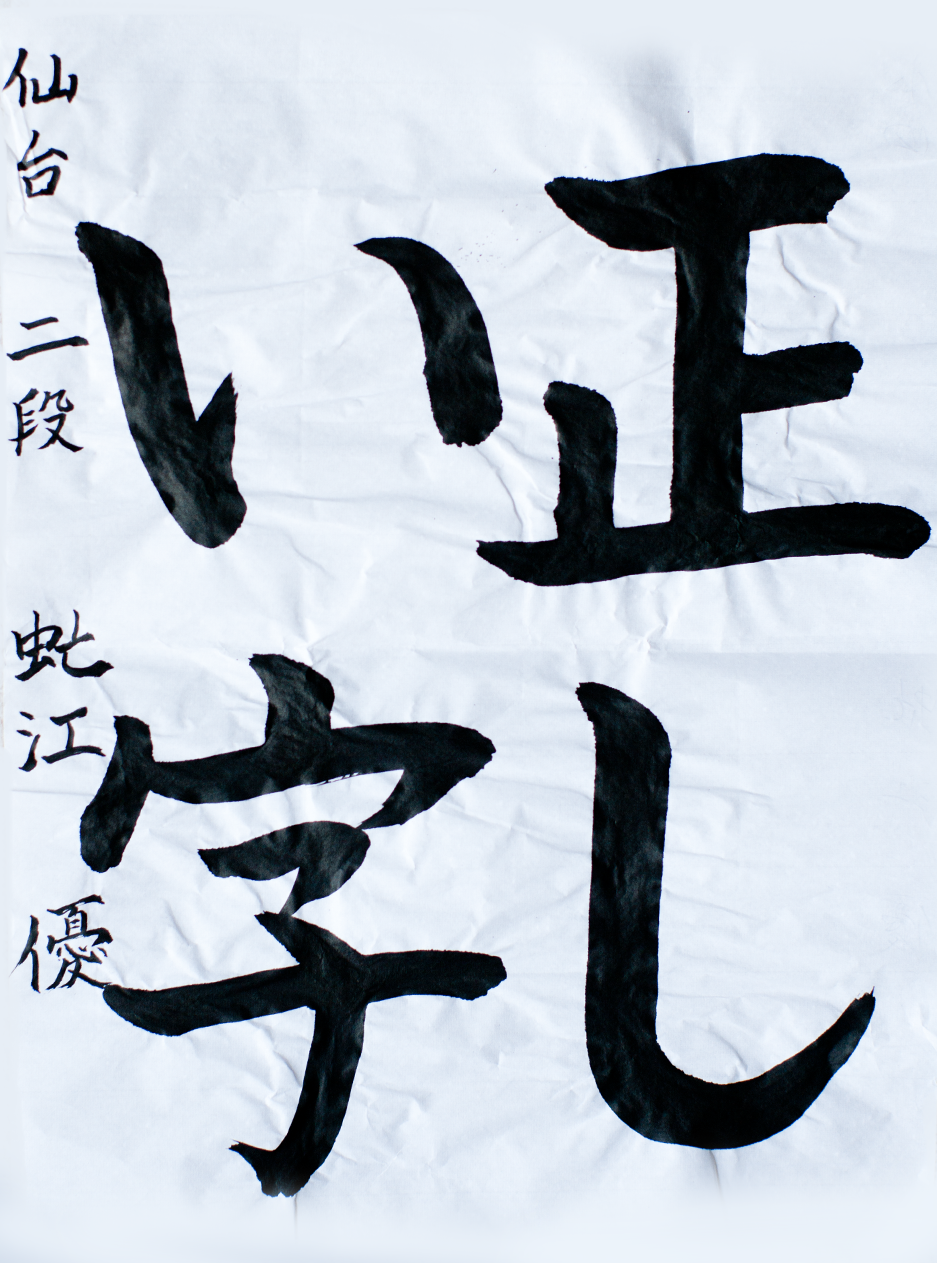 正し
い字
仙台 二段 虻江 優